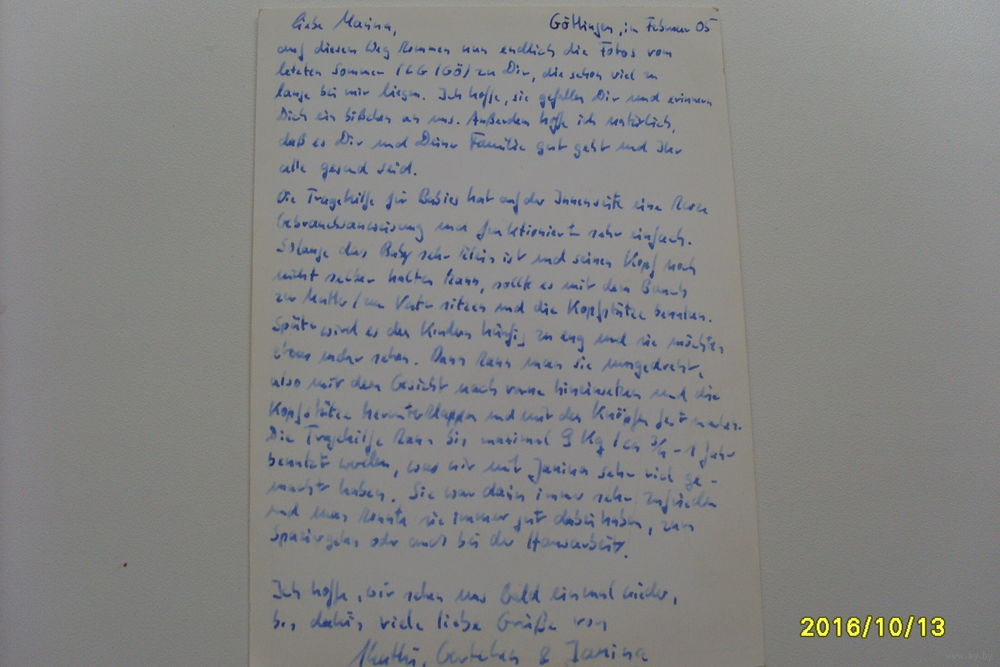 Liebe Marina, Göttingen, im Februar 05
auf diesem Weg kommen nun endlich die Fotos vom
letzten Sommer (LG/GÖ) zu Dir, die schon viel zu
lange bei mir liegen. Ich hoffe, sie gefallen Dir und erinnern
Dich ein bißchen an uns. Außerdem hoffe ich natürlich,
daß es Dir und Deiner Familie gut geht und Ihr
alle gesund seid.
Die Tragehilfe für Babies hat auf der Innenseite eine kurze
Gebrauchsanweisung und funktioniert sehr einfach.
Solange das Baby sehr klein ist und seinen Kopf noch
nicht selber halten kann, sollte es mit dem Bauch
zur Mutter/zum Vater sitzen und die Kopfstütze benutzen.
Später wird es den Kindern häufig zu eng und sie möchten
etwas mehr sehen. Dann kann man sie umgedreht,
also mit dem Gesicht nach vorne hineinsetzen und die
Kopfstütze herunterklappen und mit den Knöpfen festmachen.
Die Tragehilfe kann bis maximal 9 kg / ca 3/4 - 1 Jahr
benutzt werden, was wir mit Janina sehr viel ge-
macht haben. Sie war darin immer sehr zufrieden
und man konnte sie immer gut dabei haben, zum
Spazierngehn oder auch bei der Hausarbeit.
Ich hoffe, wir sehen uns bald einmal wieder,
bis dahin viele liebe Grüße von
& Janina
2016/10/13
www.ay.by